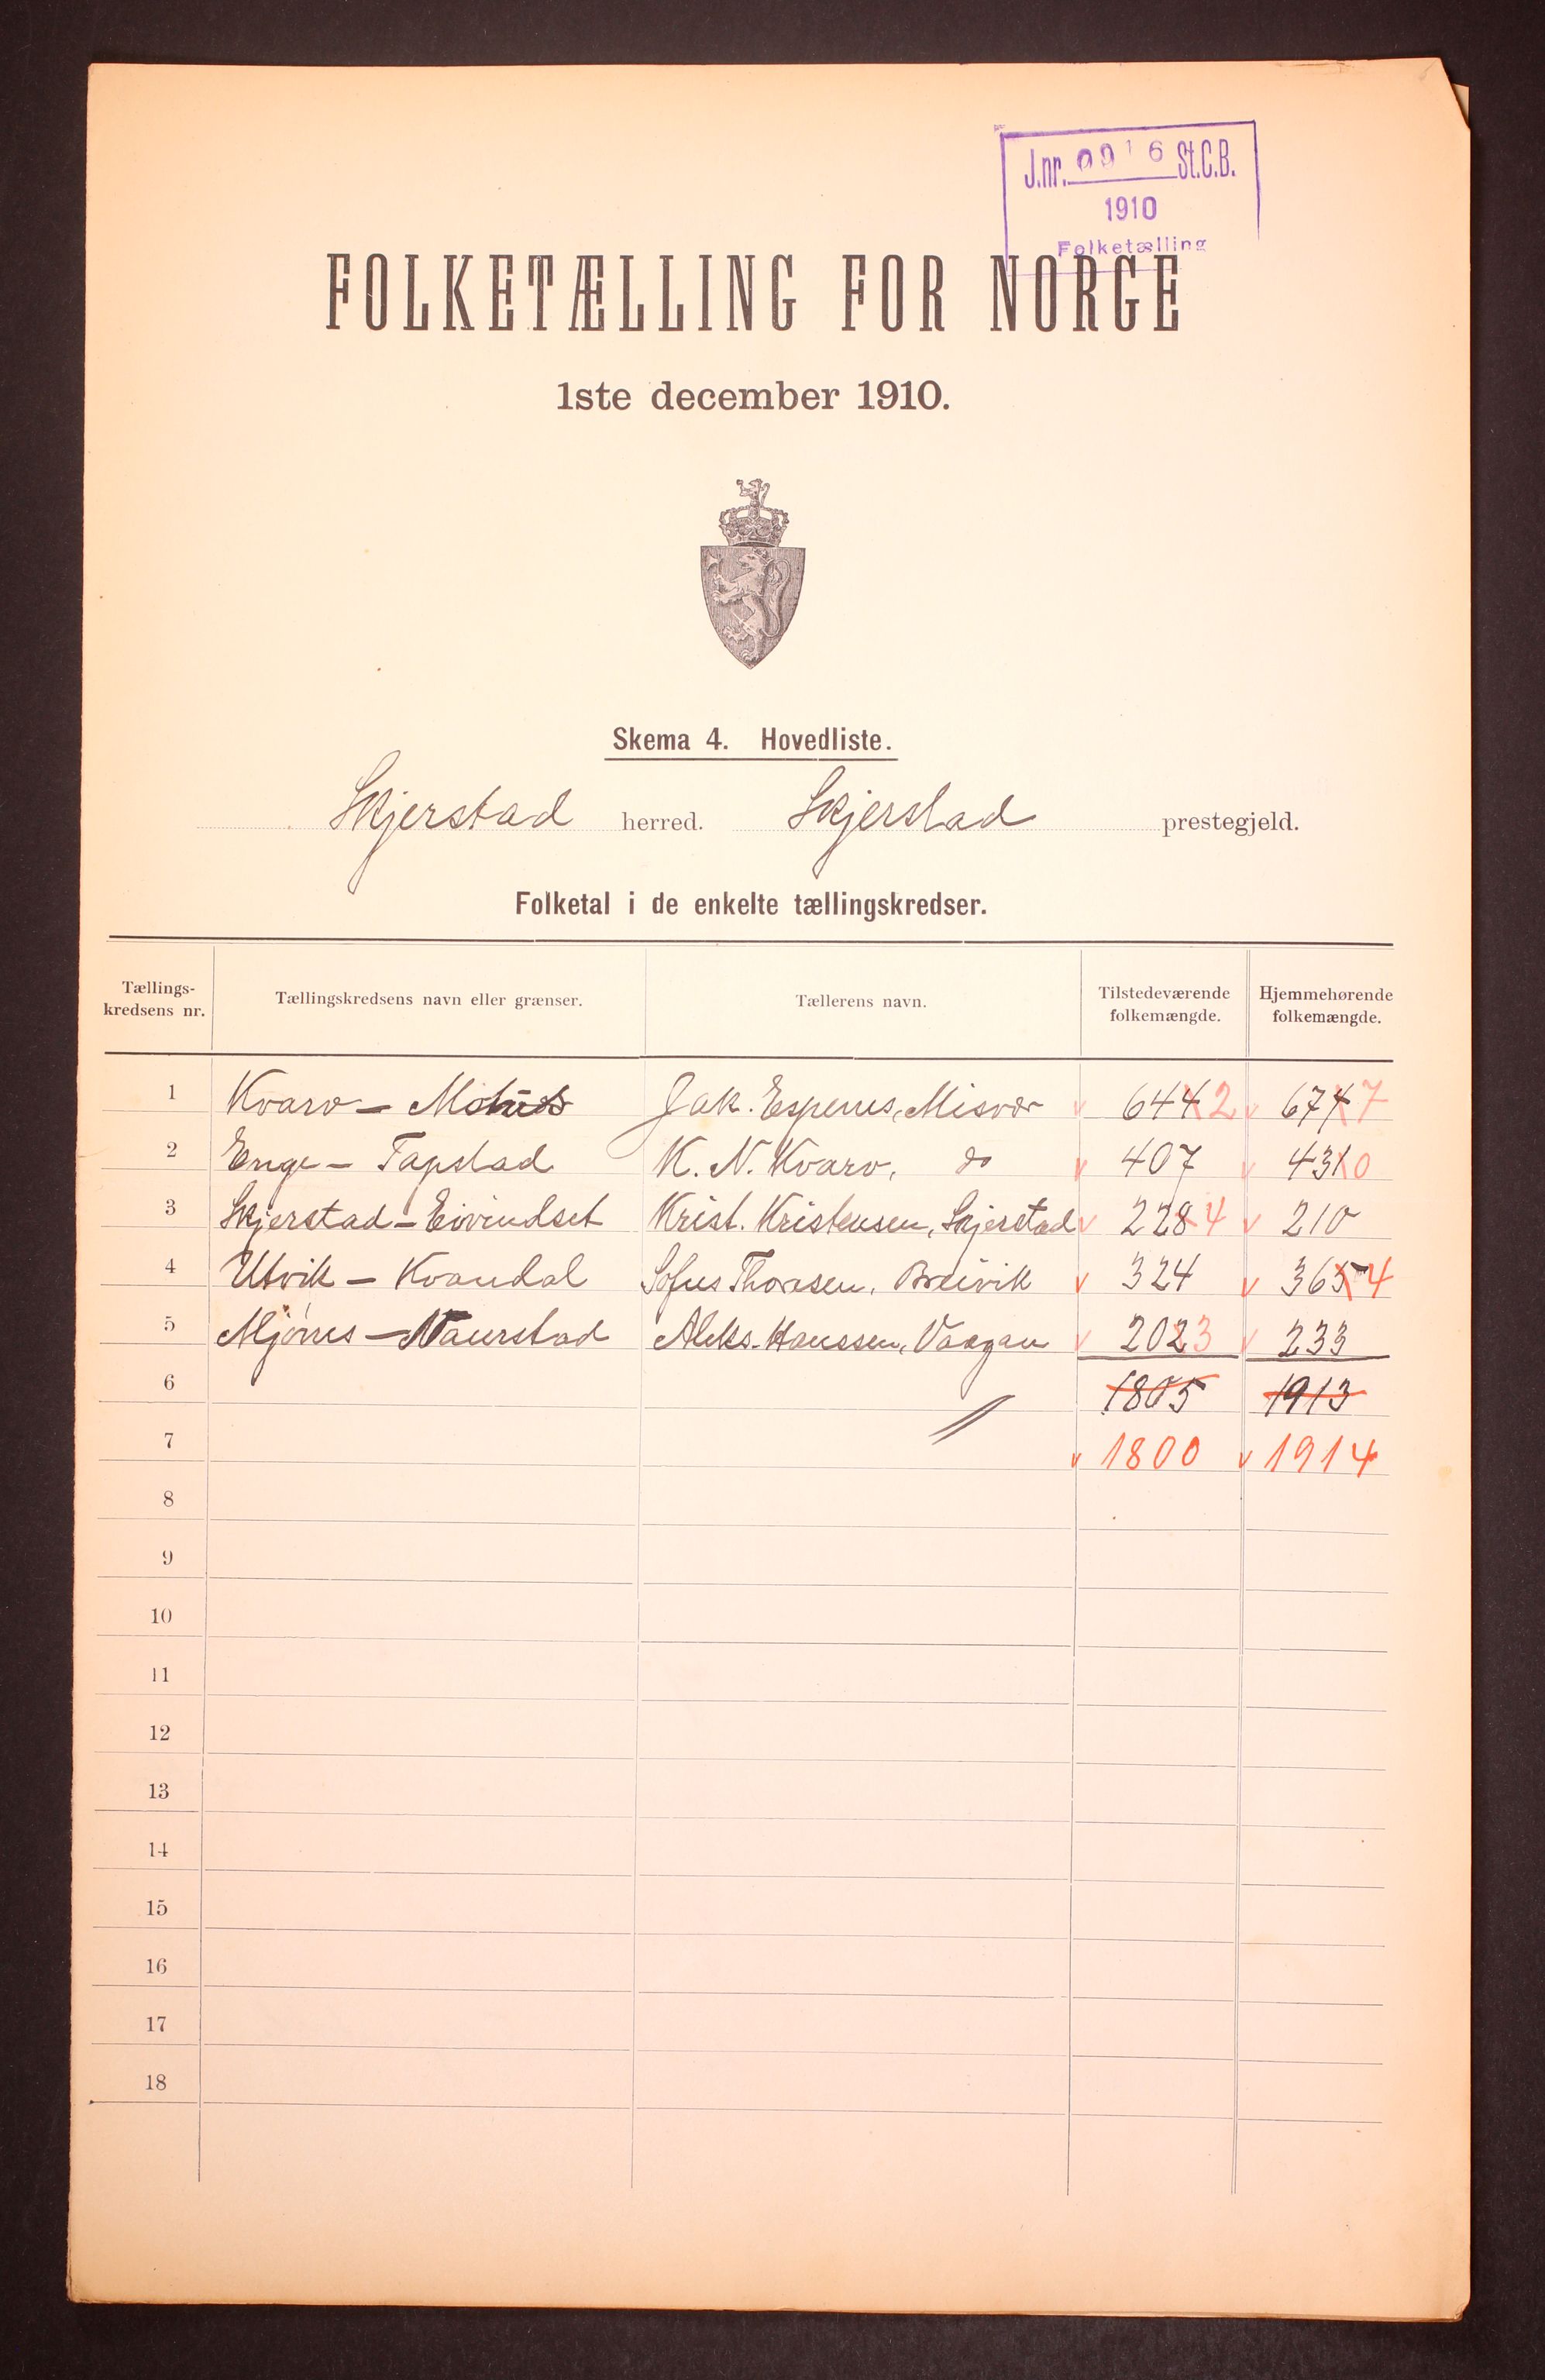 J.nr. 0916 St.C.B.
1910
Folketælling
FOLKETÆLLING FOR NORGE
1ste december 1910.
Skema 4. Hovedliste.
Skjerstad herred. Skjerstad prestegjeld.
Folketal i de enkelte tællingskredser.
Tællings-kredsens nr. Tællingskredsens navn eller grænser. Tællerens navn. Tilstedeværende folkemængde. Hjemmehørende folkemængde.
1 Kvarv - Jak. Espenes, Misvær v 644 2 v 674 7
2 Enge - Tapstad K. N. Kvarv, do v 407 v 431 0
3 Skjerstad - Eivindset Krist. Kristensen, Skjerstad v 228 4 v 210
4 Utvik - Kvandal Sofus Thoresen, Breivik v 324 v 365 4
5 Mjönes - Naurstad Aleks. Hanssen, Vaagan v 202 3 v 233
6 1805 1913
7 v 1800 v 1914
8
9
10
11
12
13
14
15
16
17
18